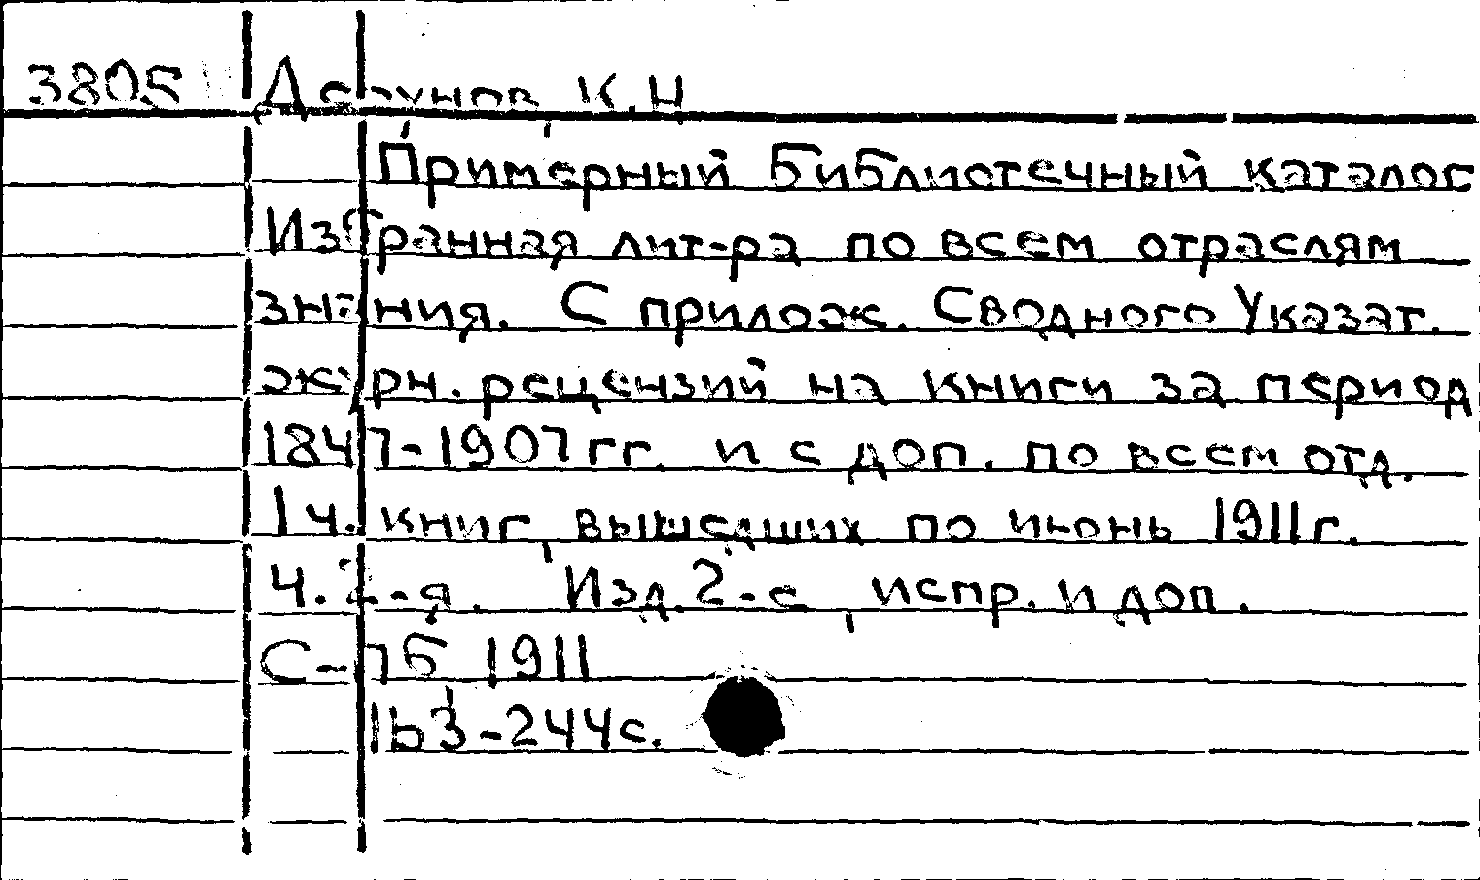 3805 Дерунов, К.Н
Примерный Библиотечный каталог
Избранная лит-ра по всем отраслям
знания. С прилож. Сводного Указат.
журн. рецензий на книги за период
1847-1907 гг. и с доп. по всем отд.
1 ч. книг, вышедших по июнь 1911 г.
Ч. 2-я. Изд. 2-е, испр. и доп.
С-Пб, 1911
163-244 с.